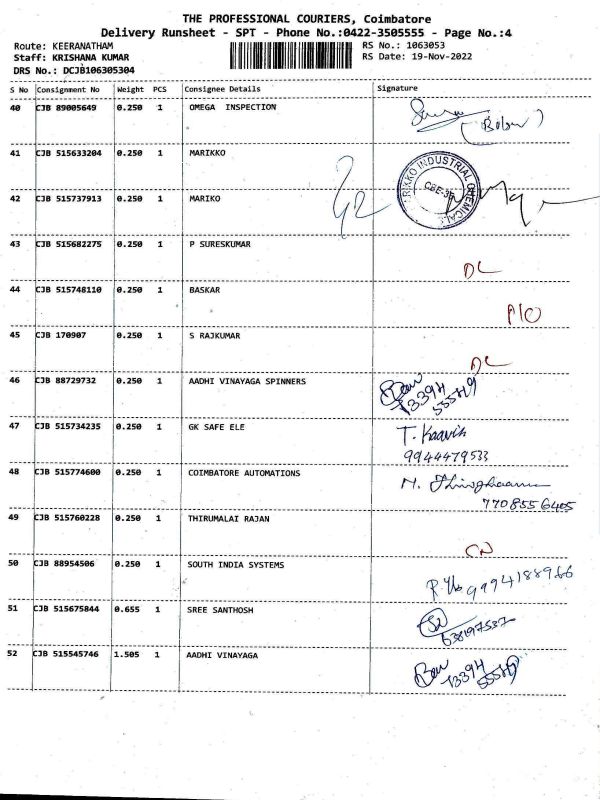 THE PROFESSIONAL COURIERS, Coimbatore
Delivery Runsheet - SPT - Phone No.:0422-3505555 - Page No.:4
Route: KEERANATHAM RS No.: 1063053
Staff: KRISHANA KUMAR RS Date: 19-Nov-2022
DRS No.: DCJB106305304
S No Consignment No Weight PCS Consignee Details Signature
40 CJB 89005649 0.250 1 OMEGA INSPECTION
41 CJB 515633204 0.250 1 MARIKKO
42 CJB 515737913 0.250 1 MARIKO
MARIKKO INDUSTRIAL CHEMICAL
CBE-35
43 CJB 515682275 0.250 1 P SURESKUMAR
DL
44 CJB 515748110 0.250 1 BASKAR
45 CJB 170907 0.250 1 S RAJKUMAR
DL
46 CJB 88729732 0.250 1 AADHI VINAYAGA SPINNERS
13394
55549
47 CJB 515734235 0.250 1 GK SAFE ELE
T. Kaavin
9944479533
48 CJB 515774600 0.250 1 COIMBATORE AUTOMATIONS
7708556405
49 CJB 515760228 0.250 1 THIRUMALAI RAJAN
CN
50 CJB 88954506 0.250 1 SOUTH INDIA SYSTEMS
9994188966
51 CJB 515675844 0.655 1 SREE SANTHOSH
52 CJB 515545746 1.505 1 AADHI VINAYAGA
13394
55549